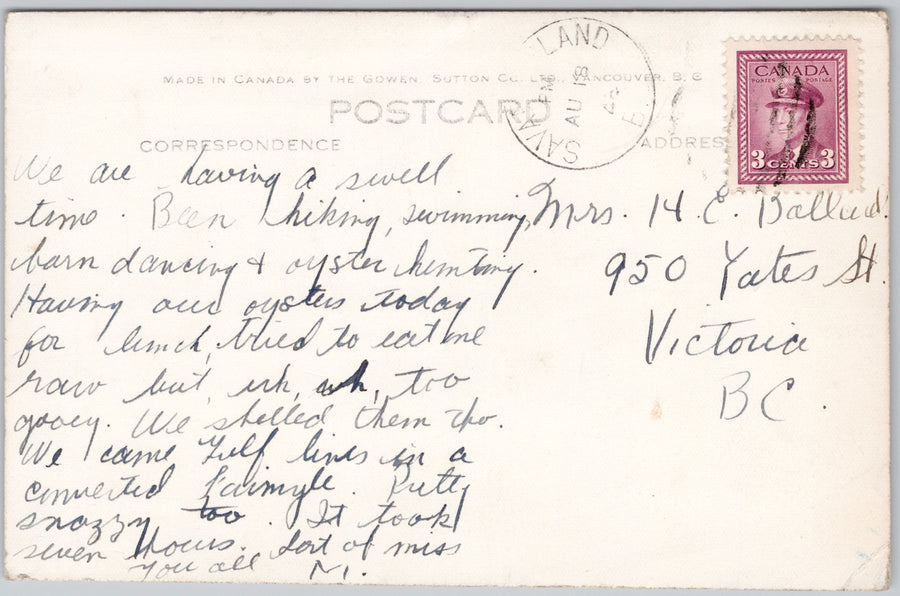 MADE IN CANADA BY THE GOWEN, SUTTON CO. LTD., VANCOUVER, B.C
POSTCARD
CORRESPONDENCE
ADDRES
LAND
PM
AU 18
CANADA
POSTES POSTAGE
3 CENTS 3
We are having a swell
time. Been hiking, swimming,
barn dancing & oyster hunting.
Having our oysters today
for lunch, tried to eat one
raw but, uh, uh, too
gooey. We shelled them tho.
We came Gulf lines in a
converted Fairmyle. Pretty
snazzy too. It took
seven hours. Sort of miss
you all
Mrs. H. C. Ballard.
950 Yates St.
Victoria
BC.